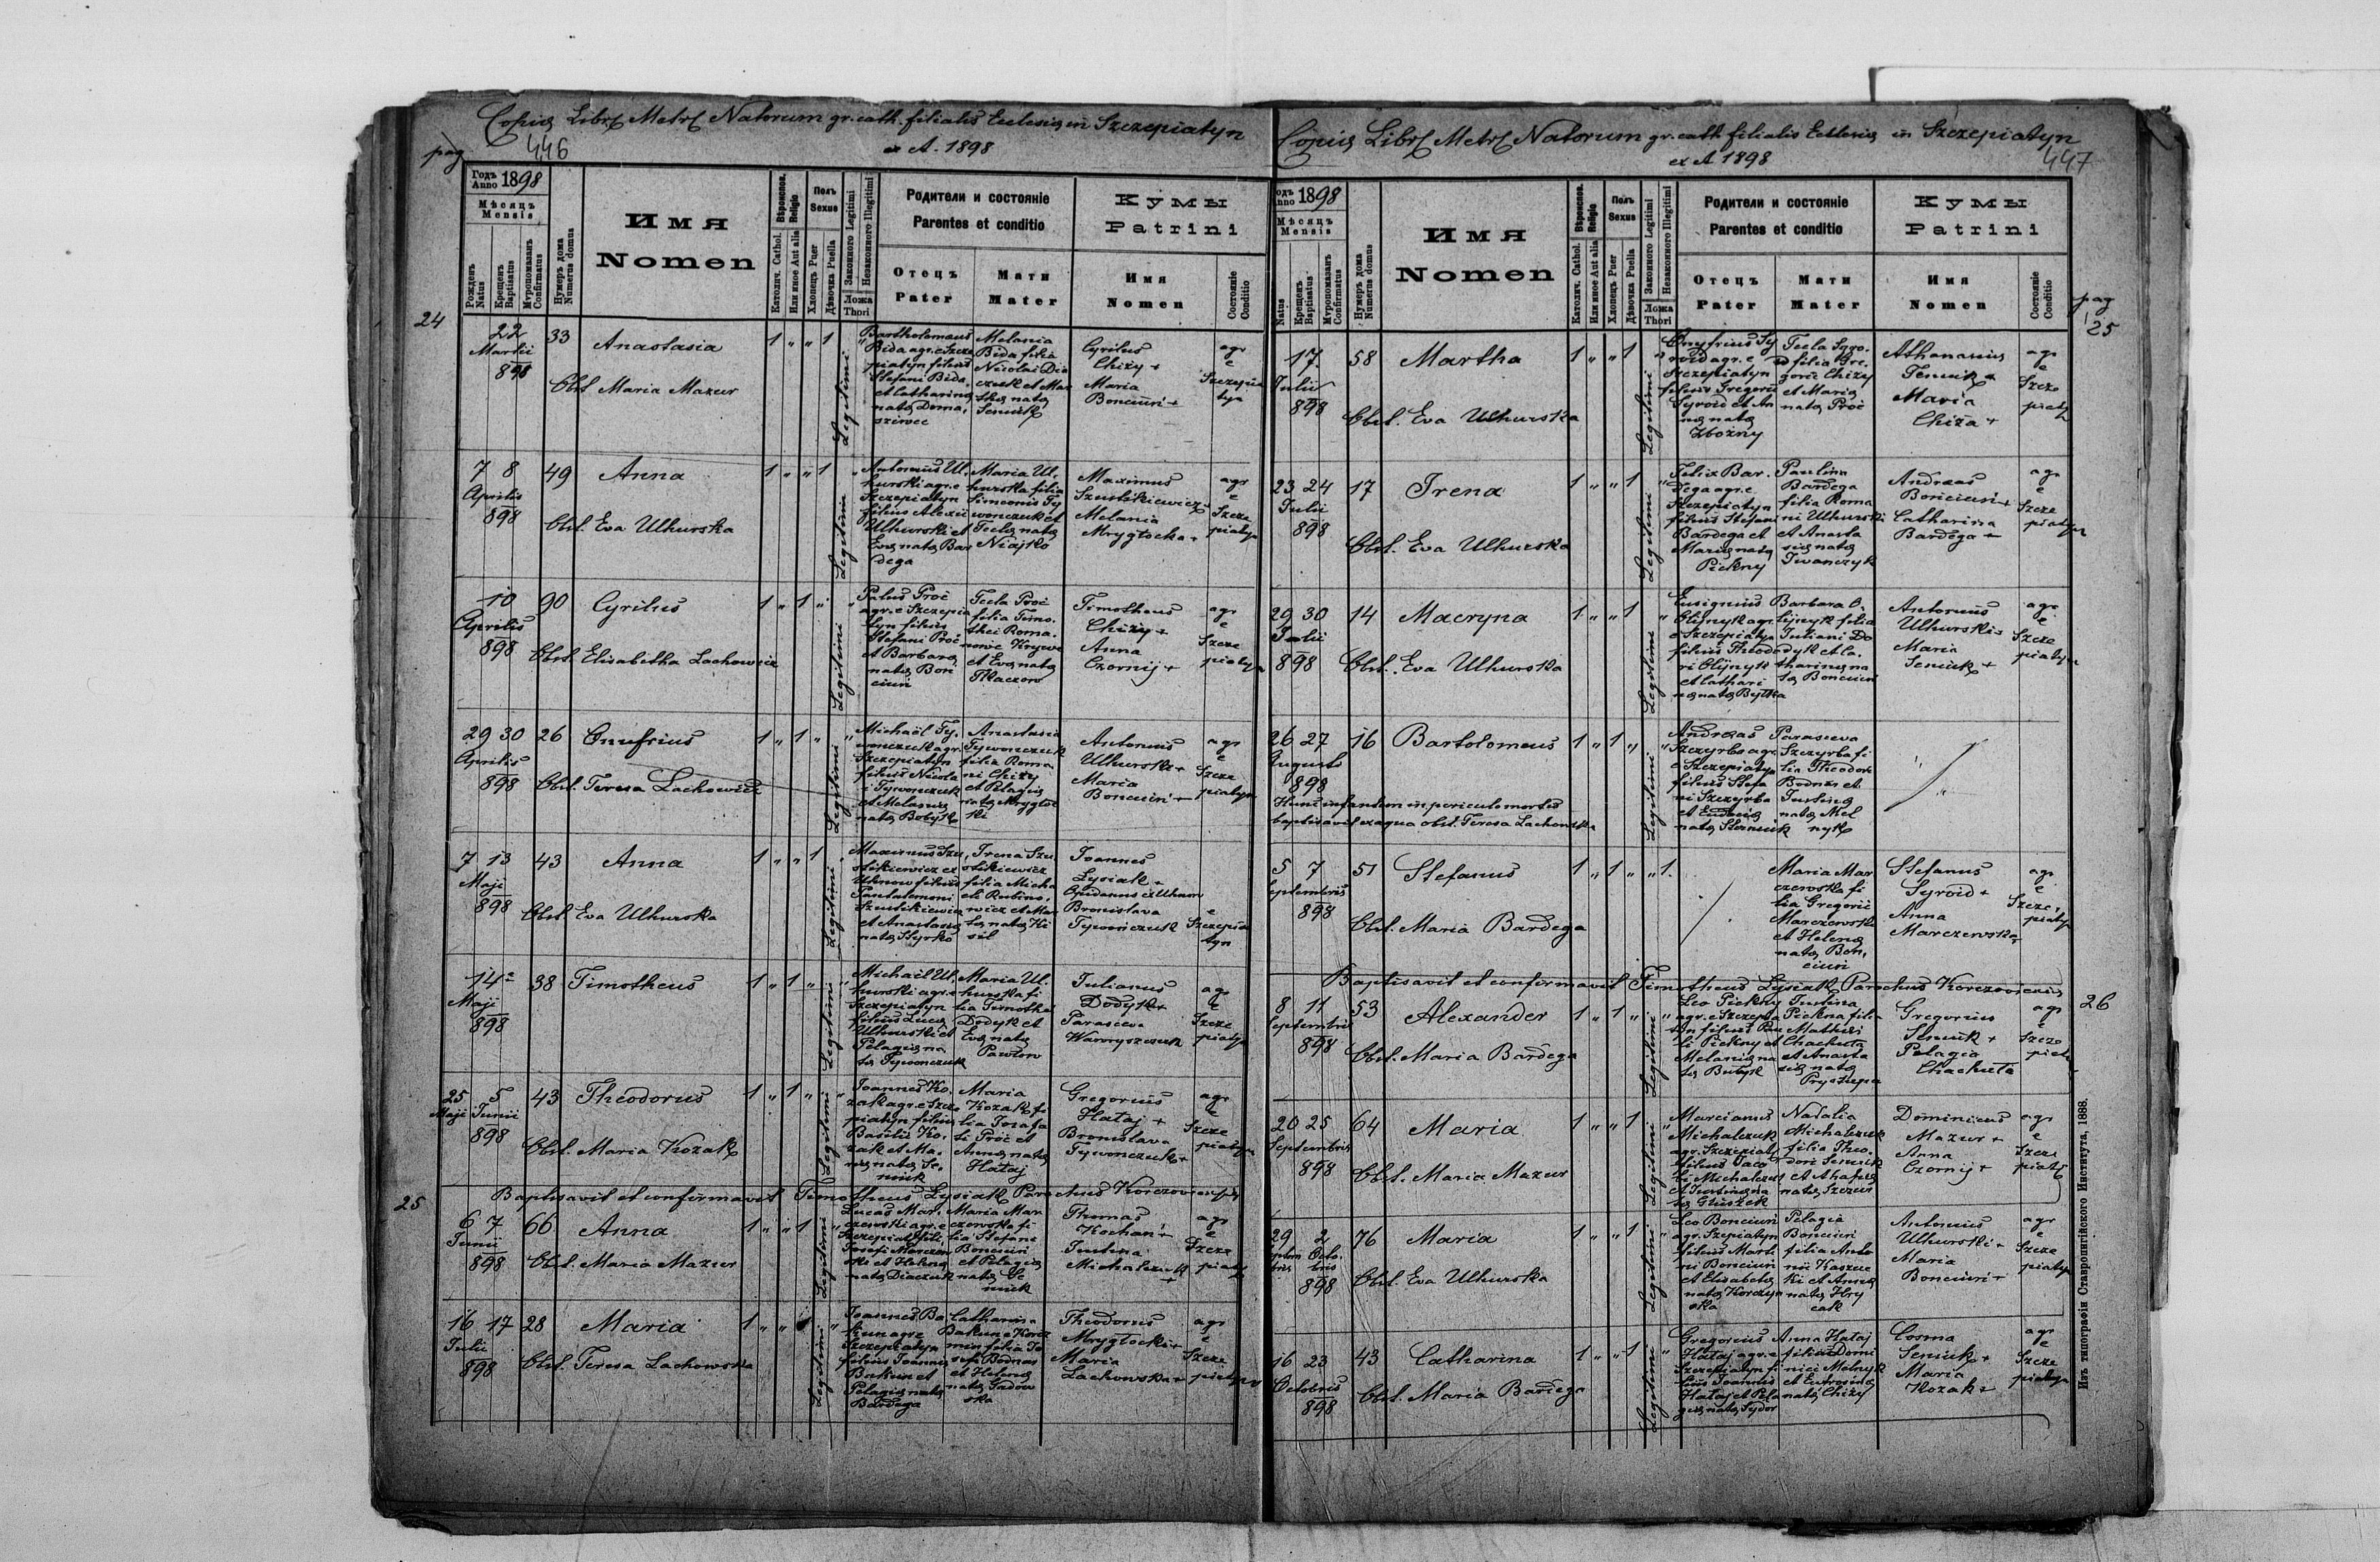 Copia Libri Metri Natorum gr. cath. filialis Ecclesia in Szczepiatyn
ex A. 1898
pag 446
Годъ Anno 1898
Мѣсяцъ
Mensis
Рожденъ Natus
Крещенъ Baptisatus
Мѵропомазанъ Confirmatus
Нумеръ дома Numerus domus
Имя
Nomen
Вѣроиспов. Religio
Католич. Cathol.
Или иное Aut alia
Полъ
Sexus
Хлопецъ Puer
Дѣвочка Puella
Законного Legitimi
Незаконного Illegitimi
Ложа
Thori
Родители и состояніе
Parentes et conditio
Отецъ
Pater
Мати
Mater
Кумы
Patrini
Имя
Nomen
Состояніе
Conditio
24
22
Martii
898
33 Anastasia 1 " " 1 "
Obst. Maria Mazur
Legitimi
Bartholomeus
Bida agr. e Szcze
piatyn filius
Stefani Bida
et Catharina
nata Doma,
sziwec
Melania
Bida filia
Nicolai Dia
czuk et Mar
tha nata
Seniuk
Cyrilus
Chiży +
Maria
Bonciuri +
agr
e
Szczepia
tyn
7 8
Aprilis
898
49 Anna 1 " " 1 "
Obst. Eva Ulhurska
Legitimi
Antonius Ul.
hurski agr. e
Szczepiatyn
filius Alexii
Ulhurski et
Eva nata Bar
dega
Maria Ul.
hurska filia
Simeonis Ty
wonczuk et
Tecla nata
Niajko
Maximus
Szustikiewicz
Melania
Mryglocka +
agr
e
Szcze
piatyn
10
Aprilis
898
90 Cyrilus 1 " 1 " "
Obst. Elisabetha Lachowicz
Legitimi
Petrus Proć
agr. e Szczepia
tyn filius
Stefani Proć
et Barbara
nata Bon
ciuri
Tecla Proć
filia Timo.
thei Roma.
nowe Krywe
et Eva nata
Tkaczow
Timotheus
Chiży +
Anna
Czornij +
agr
e
Szcze
piatyn
29 30
Aprilis
898
26 Onufrius 1 " 1 " "
Obst. Teresa Lachowicz
Legitimi
Michaël Ty.
wonczuk agr.
Szczepiatyn
filius Nicola
i Tywonczuk
et Melania
nata Bobyk
Anastasia
Tywonczuk
filia Roma
ni Chiży
et Pelagia
nata Mrygłoc
ki
Antonius
Ulhurski +
Maria
Bonciuri +
agr
e
Szcze
piatyn
7 13
Maji
898
43 Anna 1 " " 1 "
Obst. Eva Ulhurska
Legitimi
Maximus Szu,
stikiewicz ex
Uhnow filius
Pantalemoni
Szustikiewicz
et Anastasia
nata Styrko
Irena Szu
stikiewicz
filia Micha
eli Rubino,
wicz et Mar
ta nata Ki
sil
Joannes
Lysiak +
Bronislava
Tywonczuk
e
Szczepia
tyn
14
Maji
898
38 Timotheus 1 " 1 " "
Legitimi
Michaël Ul,
hurski agr. e
Szczepiatyn
filius Luca
Ulhurski et
Pelagia na
ta Tywonczuk
Maria Ul.
hurska fi
lia Timothei
Dodyk et
Eva nata
Pawlow
Julianus
Dodyk +
Parasceva
Wawryszczuk
agr
e
Szcze
piatyn
25 5
Maji Junii
898
43 Theodorus 1 " 1 " "
Obst. Maria Kozak
Legitimi
Joannes Ko.
zak agr. e Szcze
piatyn filius
Basilii Ko.
zak et Ma.
ria nata Se.
niuk
Maria
Kozak fi
lia Josafa
ti Proć et
Anna nata
Hataj
Gregorius
Hataj +
Bronislava
Tywonczuk +
agr
e
Szcze
piatyn
25
Baptisavit et confirmavit Timotheus Lysiak Parochus Korczoviensis
6 7
Junii
898
66 Anna 1 " " 1 "
Obst. Maria Mazur
Legitimi
Lucas Mar.
czewski agr. e
Szczepiat. fili.
Josefi Marczew
ski et Helena
nata Diaczuk
Maria Mar
czewska fi
lia Stefani
Bonciuri
et Pelagia
nata Se
niuk
Thomas
Kochan +
Justina
Michalczuk +
agr
e
Szcze
piatyn
16 17
Julii
898
28 Maria 1 " " 1 "
Obst. Teresa Lachowska
Legitimi
Joannes Ba
kun agr e
Szczepiatyn
filius Joannis
Bakun et
Pelagia nata
Bardega
Catharina
Bakun e Korcz
min filia Jo
sefi Bodnar
et Helena
nata Sadow
ska
Theodorus
Mryglocki +
Maria
Lachowska +
agr
e
Szcze
piatyn
Copia Libri Metri Natorum gr. cath. filialis Ecclesia in Szczepiatyn
ex A 1898
447
Годъ Anno 1898
Мѣсяцъ
Mensis
Natus
Крещенъ Baptisatus
Мѵропомазанъ Confirmatus
Нумеръ дома Numerus domus
Имя
Nomen
Вѣроиспов. Religio
Католич. Cathol.
Или иное Aut alia
Полъ
Sexus
Хлопецъ Puer
Дѣвочка Puella
Законного Legitimi
Незаконного Illegitimi
Ложа
Thori
Родители и состояніе
Parentes et conditio
Отецъ
Pater
Мати
Mater
Кумы
Patrini
Имя
Nomen
Состояніе
Conditio
pag
25
17
Julii
898
58 Martha 1 " " 1 "
Obst. Eva Ulhurska
Legitimi
Onyfrius Sy
roid agr. e
Szczepiatyn
filius Gregorii
Syroid et An
na nata
Zbożny
Tecla Syro.
id filia Gre.
gorii Chiży
et Maria
nata Proć
Athanasius
Seniuk +
Maria
Chiża +
agr
e
Szcze
piatyn
23 24
Julii
898
17 Irena 1 " " 1 "
Obst. Eva Ulhurska
Legitimi
Felix Bar.
dega agr. e
Szczepiatyn
filius Stefani
Bardega et
Maria nata
Piekny
Paulina
Bardega
filia Roma
ni Ulhurski
et Anasta
sia nata
Iwanczyk
Andreas
Bonciuri +
Catharina
Bardega +
agr
e
Szcze
piatyn
29 30
Julii
898
14 Macryna 1 " " 1 "
Obst. Eva Ulhurska
Legitimi
Eusignius
Olijnyk agr.
e Szczepiatyn
filius Theodo
ri Olijnyk
et Cathari
na nata Bytka
Barbara O.
lijnyk filia
Juliani Do
dyk et Ca.
tharina na
ta Bonciuri
Antonius
Ulhurski +
Maria
Seniuk +
agr
e
Szcze
piatyn
26 27
Augusti
898
16 Bartolomeus 1 " 1 " "
Hunc infantem in periculo mortis
baptisavit ex aqua obst. Teresa Lachowska
Legitimi
Andreas
Szczyrba agr
e Szczepiatyn
filius Stefa
ni Szczyrba
et Eudocia
nata Steniuk
Parasceva
Szczyrba fi
lia Theodori
Bodnar et
Justina
nata Mel
nyk
5 7
Septembris
898
51 Stefanus 1 " 1 " " 1.
Obst. Maria Bardega
Maria Mar
czewska fi
lia Gregorii
Marczewski
et Helena
nata Bon,
ciuri
Stefanus
Syroid +
Anna
Marczewska +
agr
e
Szcze,
piatyn
Baptisavit et confirmavit Timotheus Lysiak Parochus Korczoviensis
26
8 11
Septembris
898
53 Alexander 1 " 1 " "
Obst. Maria Bardega
Legitimi
Leo Piekny
agr. e Szczepia
tyn filius Pau
li Piekny et
Melania na
ta Butyk
Justina
Piekna filia
Mathei
Chachuta
et Anasta
sia nata
Prystupa
Gregorius
Seniuk +
Pelagia
Chachuta
agr
e
Szcze
piatyn
20 25
Septembris
898
64 Maria 1 " " 1 "
Obst. Maria Mazur
Legitimi
Marcianus
Michalczuk
agr. Szczepiatyn
filius Jaco
bi Michalczuk
et Justina na
ta Głuszek
Natalia
Michalczuk
filia Theo.
dori Seniuk
et Ahafia
nata Szczur
Dominicus
Mazur +
Anna
Czornij +
agr
e
Szcze
piatyn
29 2
Septem Octo.
bris bris
898
76 Maria 1 " " 1 "
Obst. Eva Ulhurska
Legitimi
Leo Bonciuri
agr. Szepiatyn
filius Marti
ni Bonciuri
et Elisabeta
nata Korczyn
ska
Pelagia
Bonciuri
filia Anto
nii Kaszuc
ki et Anna
nata Hry
cak
Antonius
Ulhurski +
Maria
Bonciuri +
agr
e
Szcze
piatyn
16 23
Octobris
898
43 Catharina 1 " " 1 "
Obst. Maria Bardega
Legitimi
Gregorius
Hataj agr. e
Szczepiatyn fi
lius Joannis
Hataj et Pela
gia nata Sydor
Anna Hataj
filia Domi
nici Melnyk
et Eufrosina
nata Chiży
Cosma
Seniuk +
Maria
Kozak +
agr
e
Szcze
piatyn
Изъ типографіи Ставропигійского Института, 1888.